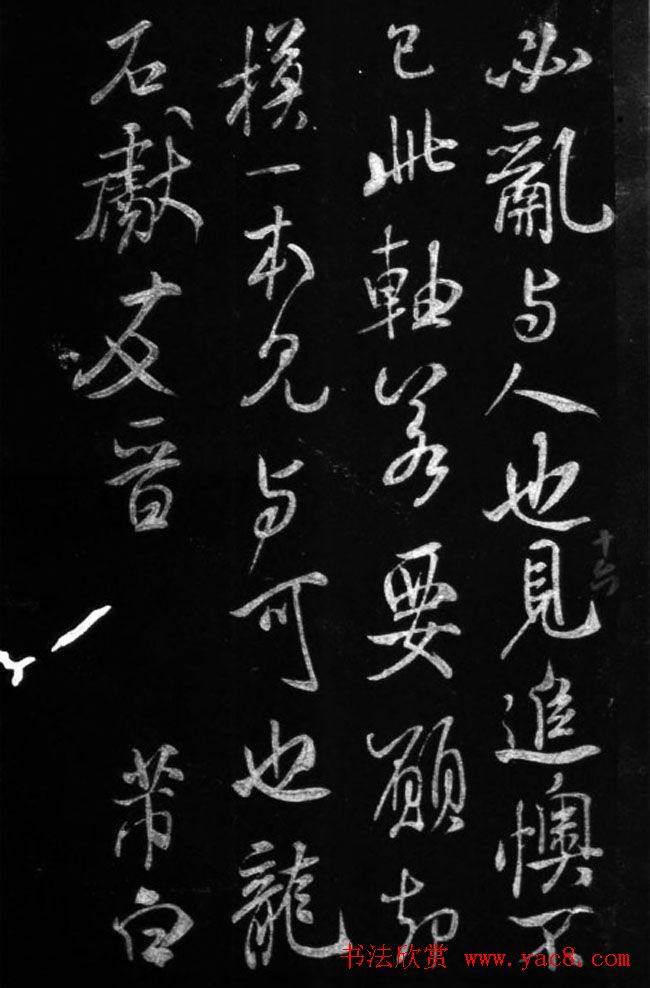 必亂与人也見追懊不
已此軸若要願
模一本見与可也龍
石獻友晋
芾白
书法欣赏 www.yac8.com